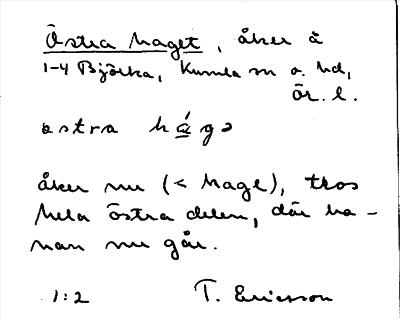 Östra haget, åker å
1-4 Björka, Kumla sn o. hd,
Ör. l.
östra há̲gə
åker nu (< hage), tros
hela östra delen, där ba-
nan nu går.
1:2 T. Ericsson